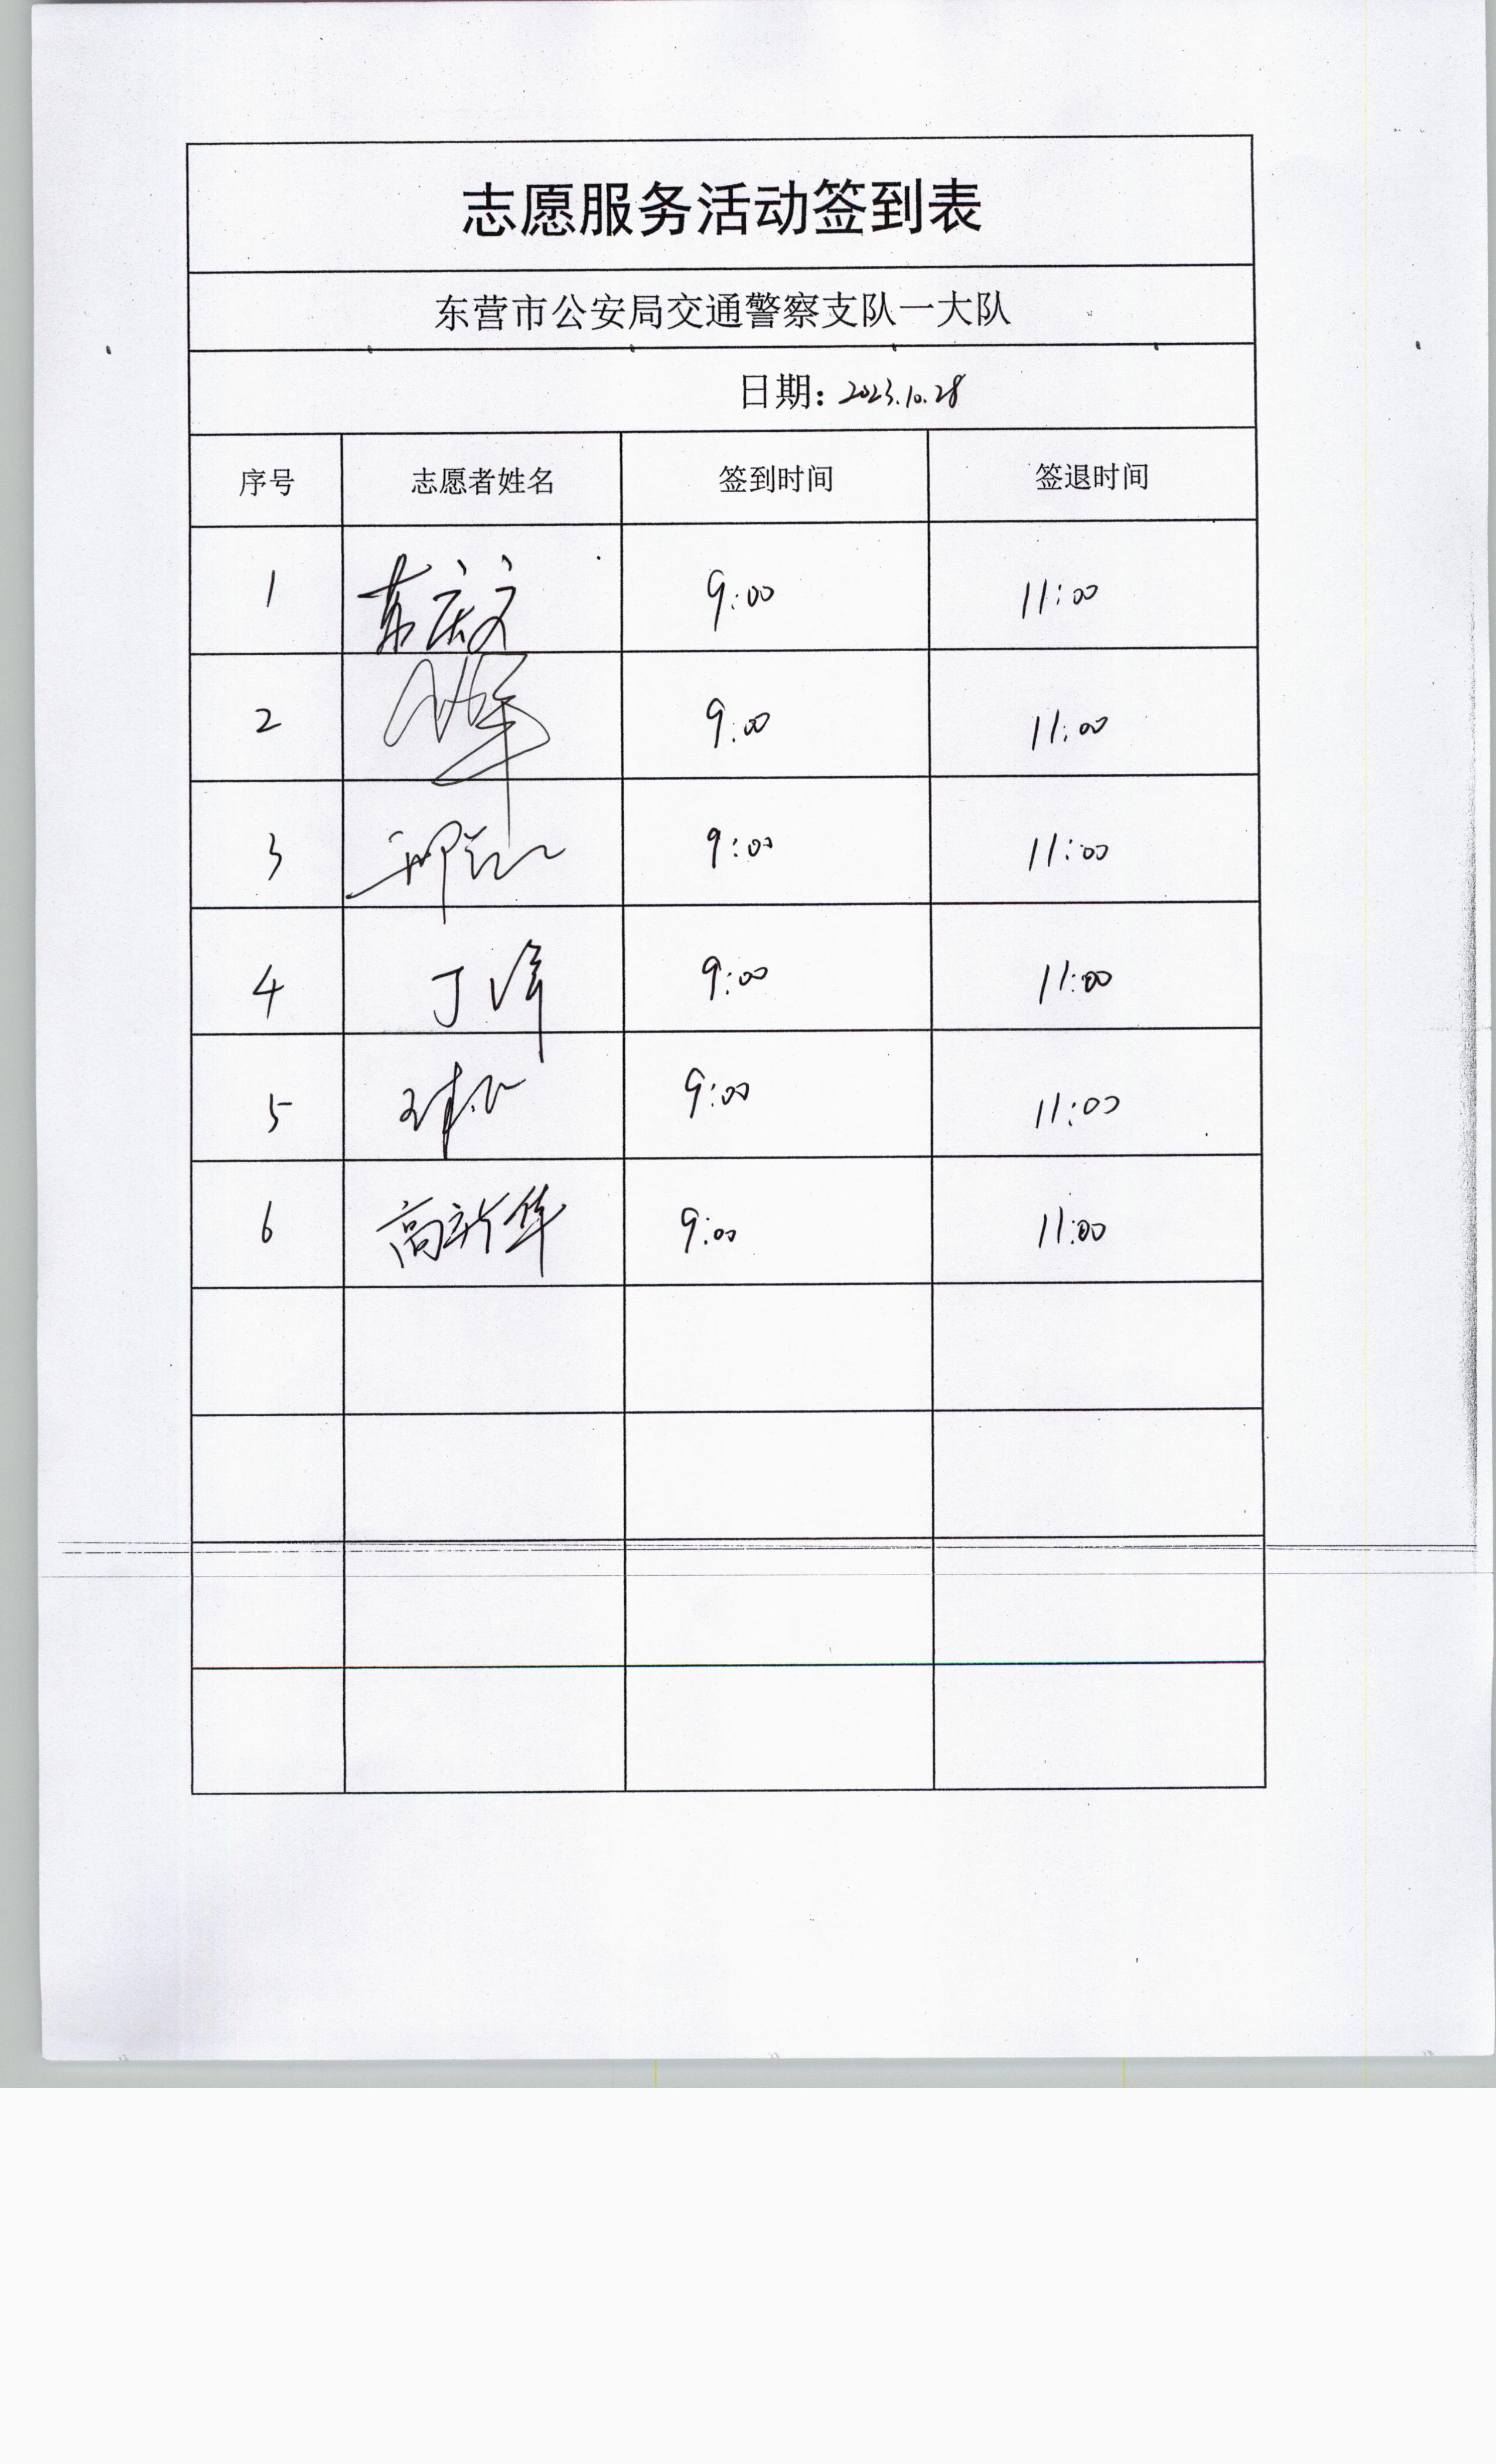 志愿服务活动签到表
东营市公安局交通警察支队一大队
日期: 2023.10.28
序号 志愿者姓名 签到时间 签退时间
1 9:00 11:00
2 9:00 11:00
3 9:00 11:00
4 丁 9:00 11:00
5 9:00 11:00
6 高新华 9:00 11:00